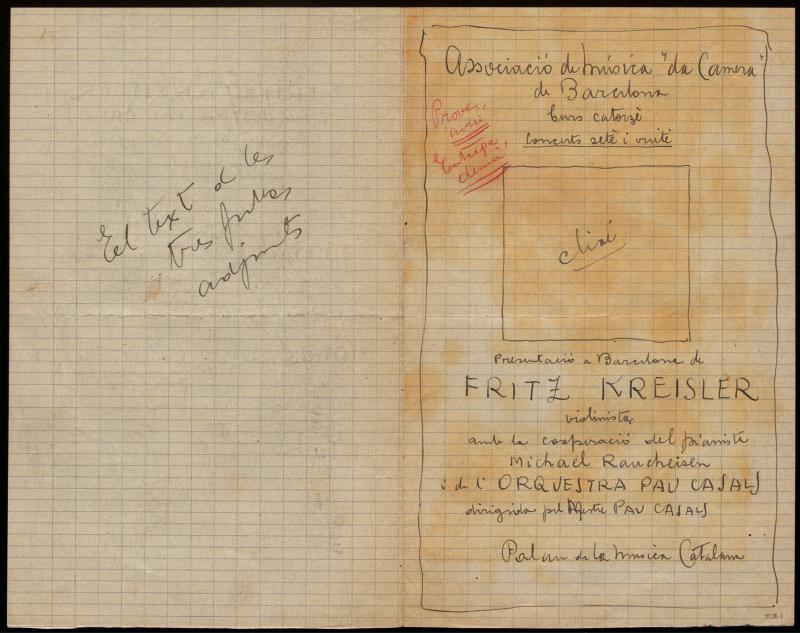 El text a les
tres fulles
adjunts
Associació de música "da Camera"
de Barcelona
Curs catorzè
Concerts setè i vuitè
Proves,
avui
Entrega
demà!
clixé
Presentació a Barcelona de
FRITZ KREISLER
violinista
amb la cooperació del pianista
Michael Raucheisen
i de l'ORQUESTRA PAU CASALS
dirigida pel Mestre PAU CASALS
Palau de la Música Catalana